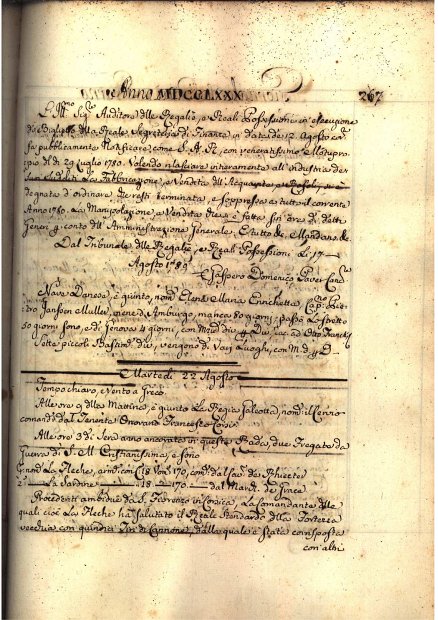 Anno MDCCLXXX
267
L'Ill.mo Sig.r Auditore dlle Regalie, e Reali Possessioni in esecuzione
di Biglietto dlla Reale Segreteria di Finanze in data de' 12. Agosto
fa pubblicamente Notificare, come S. A. R., con veneratissimo Motupro-
prio dl dì 29 Luglio 1780. Volendo rilasciare interamente all'industria dei
Suoi Sudditi La Fabbricazione, e Vendita dll'Acquavite, e Rosolj, si è
degnata d'ordinare, che resti terminata, e soppressa a tutto il corrente
Anno 1780. La Manipolazione, e Vendita fatta fin'ora di dette
Gener. p conto dll'Amministrazione Generale. E tutto de Mandato &c.
Dal Tribunale dlle Regalie, e Reali Possessioni Li 17
Agosto 1780
Gaspero Domenico Paver Canc.re
Nave Danese, è giunto, nom.
Elena Maria Enrichetta
Cap.
dro Jansen Muller, viene d'Amburgo, manca 80 giorni, passò Lo stretto
50 giorni sono, e di Genova 4 giorni, con
Sette piccoli Bastim. vengono da Varj Luoghi, con M. p
Martedì 22 Agosto
Tempo chiaro, e Vento a Greco.
Alle ore 9 dlla Mattina, è giunta La Regia Galeotta, nom.
comand. dal Tenente Onorario Francesco
Alle ore 3 di Sera anno ancorato in questa Rada, due Fregate da
Guerra di S. M. Cristianissima, e sono
La Fleche, arm. con 18 170, com. dal Cav. de
2.a La Sardine 18 170 dal March. de Grace
Procedenti ambidue da S. Fiorenzo in Corsica, La Comandante dlle
quali cioè La Fleche ha salutato il Reale Stendardo dlla Fortezza
vecchia con quindici Tiri di Cannone, dalla quale è stato corrisposto
con altri